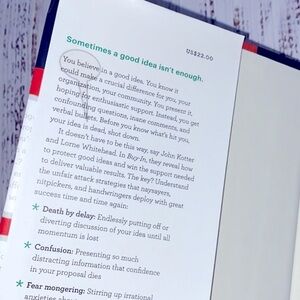 US$22.00
Sometimes a good idea isn't enough.
You believe in a good idea. You know it
could make a crucial difference for you, your
organization, your community. You present it,
hoping for enthusiastic support. Instead, you get
confounding questions, inane comments, and
verbal bullets. Before you know what's hit you,
your idea is dead, shot down.
It doesn't have to be this way, say John Kotter
and Lorne Whitehead. In Buy-In, they reveal how
to protect good ideas and win the support needed
to deliver valuable results. The key? Understand
the unfair attack strategies that naysayers,
nitpickers, and handwringers deploy with great
success time and time again:
* Death by delay: Endlessly putting off or
diverting discussion of your idea until all
momentum is lost
* Confusion: Presenting so much
distracting information that confidence
in your proposal dies
* Fear mongering: Stirring up irrational
anxieties about